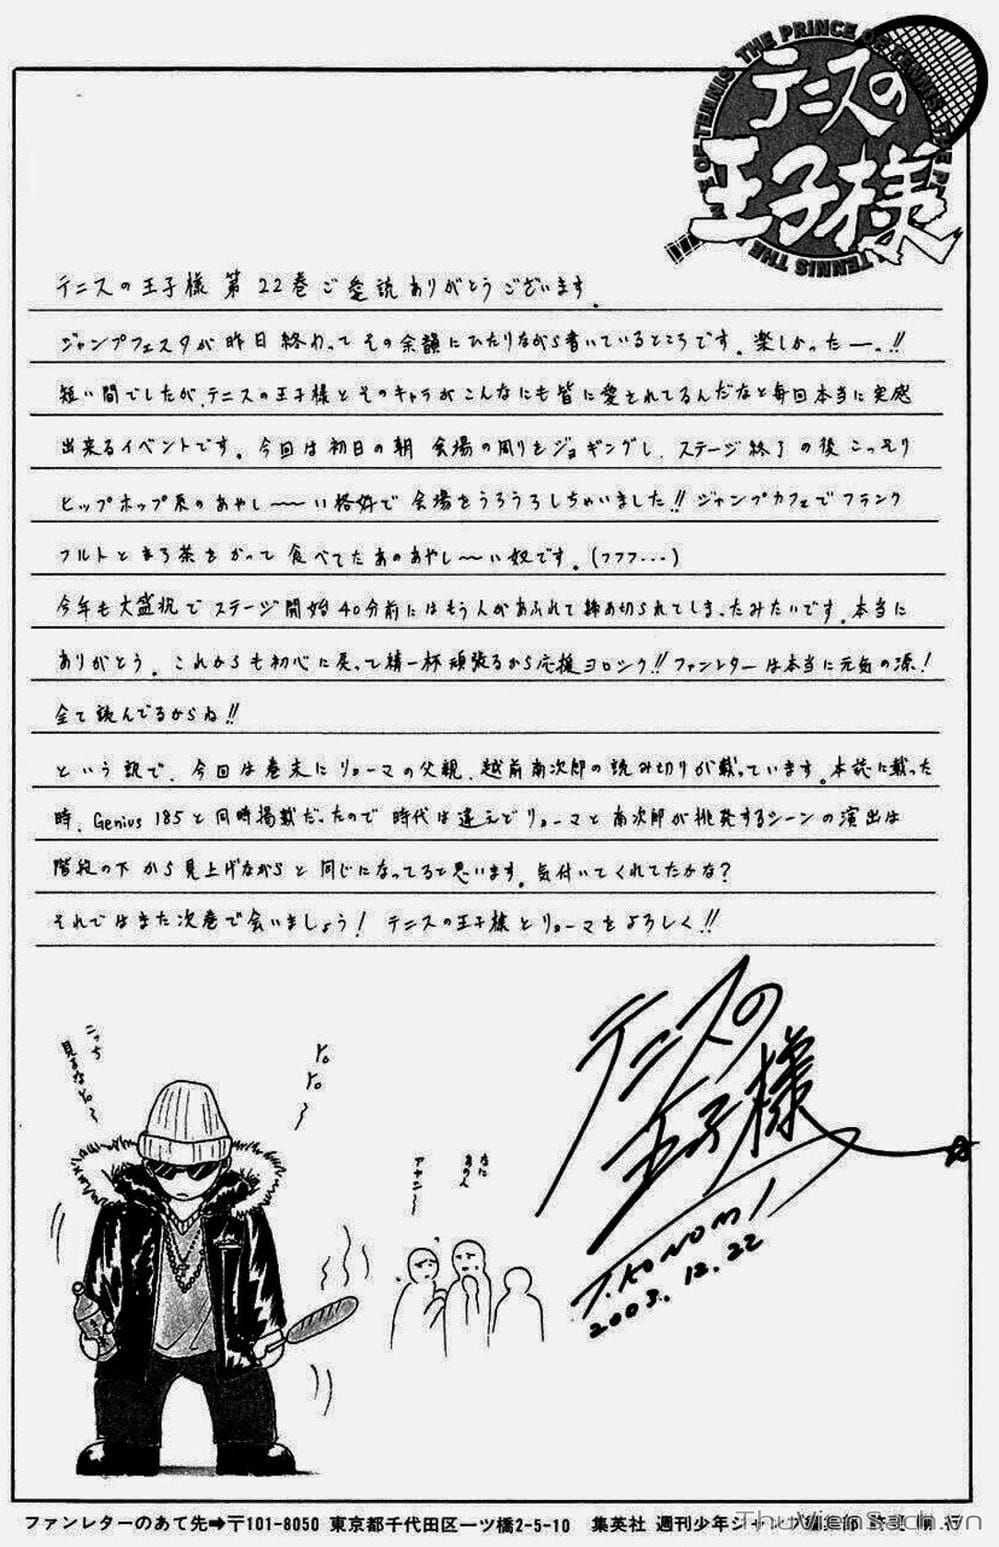 THE PRINCE OF TENNIS
テニスの
王子様
テニスの王子様 第22巻ご愛読ありがとうございます。
ジャンプフェスタが昨日終わってその余韻にひたりながら書いているところです。楽しかったーっ!!
短い間でしたが、テニスの王子様とそのキャラがこんなにも皆に愛されてるんだなと毎回本当に実感
出来るイベントです。今回は初日の朝 会場の周りをジョギングし、ステージ終了の後こっそり
ヒップホップ系のあやし〜〜い格好で 会場をうろうろしちゃいました!! ジャンプカフェでフランク
フルトとまろ茶をかって 食べてた あのあやし〜い奴です。(フフフ...)
今年も大盛況で ステージ開始40分前にはもう人があふれて締め切られてしまったみたいです。本当に
ありがとう。これからも初心に戻って精一杯頑張るから応援ヨロシク!! ファンレターは本当に元気の源!
全て読んでるからね!!
という訳で、今回は巻末にリョーマの父親、越前南次郎の読み切りが載っています。本誌に載った
時、Genius 185と同時掲載だったので 時代は違えどリョーマと南次郎が挑発するシーンの演出は
階段の下から見上げながらと同じになってると思います。気付いてくれてたかな?
それではまた次巻で会いましょう! テニスの王子様とリョーマをよろしく!!
こっち
見るなYo〜
Yo
Yo〜
なに
あの人
アヤシ〜
テニスの
王子様
T.KONOMI
2003.12.22
ファンレターのあて先➡〒101-8050 東京都千代田区一ツ橋2-5-10 集英社 週刊少年ジャンプ編集部
ThuVienSach.vn